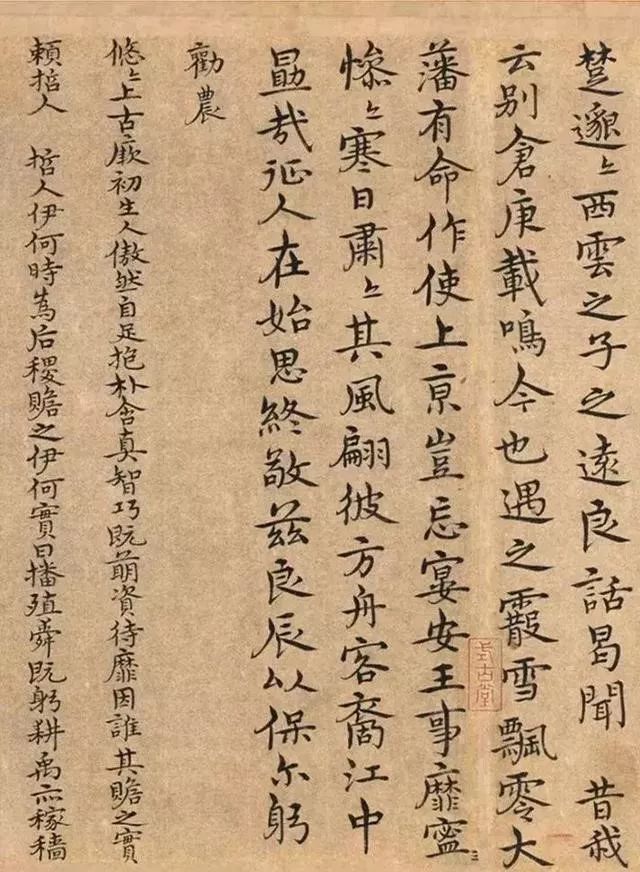 楚邈〻西雲之子之遠良話曷聞　昔我
云别倉庚載鳴今也遇之霰雪飄零大
藩有命作使上亰豈忘宴安王事靡寍
慘〻寒日肅〻其風翩彼方舟容裔江中
勗哉征人在始思終敬茲良辰以保尔躬
勸農
悠〻上古厥初生人傲然自足抱朴含真智巧既萌資待靡因誰其贍之實
賴哲人　哲人伊何時為后稷贍之伊何實曰播殖舜既躬耕禹亦稼穡
式古堂